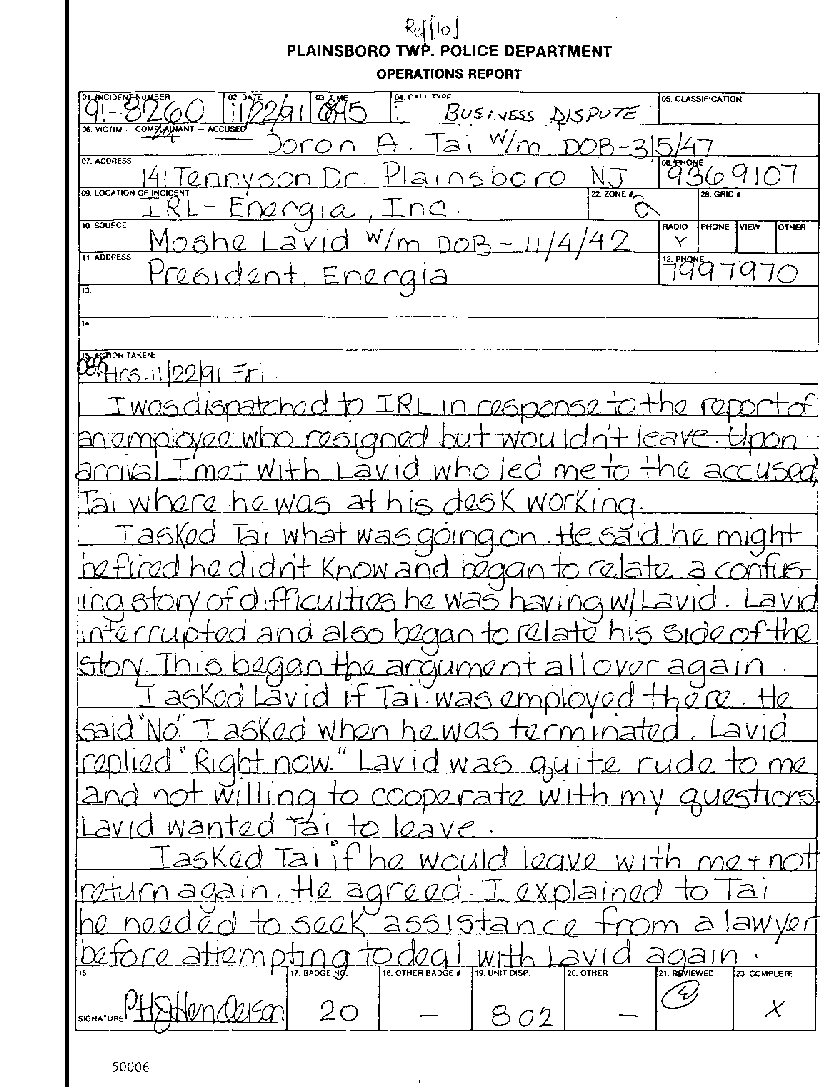 PLAINSBORO TWP. POLICE DEPARTMENT
OPERATIONS REPORT
01. INCIDENT NUMBER 02. DATE 03. TIME 04. CALL TYPE 05. CLASSIFICATION
91-8260 11/22/91 BUSINESS DISPUTE
06. VICTIM - COMPLAINANT - ACCUSED
Doron A. Tai W/m DOB-3/5/47
07. ADDRESS 08. PHONE
141 Tennyson Dr. Plainsboro NJ 9369107
09. LOCATION OF INCIDENT 22. ZONE # 28. GRID #
IRL- Energia, Inc.
10. SOURCE RADIO PHONE VIEW OTHER
Moshe Lavid W/m DOB-11/4/42 Y
11. ADDRESS 12. PHONE
President, Energia 7997970
13.
14.
15. ACTION TAKEN:
Hrs. 11/22/91 Fri.
I was dispatched to IRL in response to the report of
an employee who resigned but wouldn't leave. Upon
arrival I met with Lavid who led me to the accused,
Tai where he was at his desk working.
I asked Tai what was going on. He said he might
be fired he didn't know and began to relate a confus-
ing story of difficulties he was having w/Lavid. Lavid
interrupted and also began to relate his side of the
story. This began the argument all over again.
I asked Lavid if Tai was employed there. He
said "No." I asked when he was terminated. Lavid
replied "Right now." Lavid was quite rude to me
and not willing to cooperate with my questions
Lavid wanted Tai to leave.
I asked Tai if he would leave with me + not
return again. He agreed. I explained to Tai
he needed to seek assistance from a lawyer
before attempting to deal with Lavid again.
17. BADGE NO. 18. OTHER BADGE # 19. UNIT DISP. 20. OTHER 21. REVIEWED 23. COMPLETE
SIGNATURE Henderson 20 — 802 — X
50006